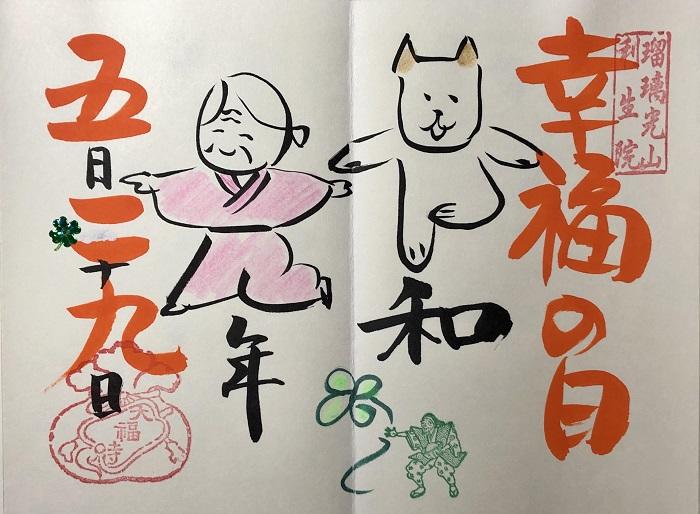 瑠璃光山
利生院
幸福の日
和
年
五月二十九日